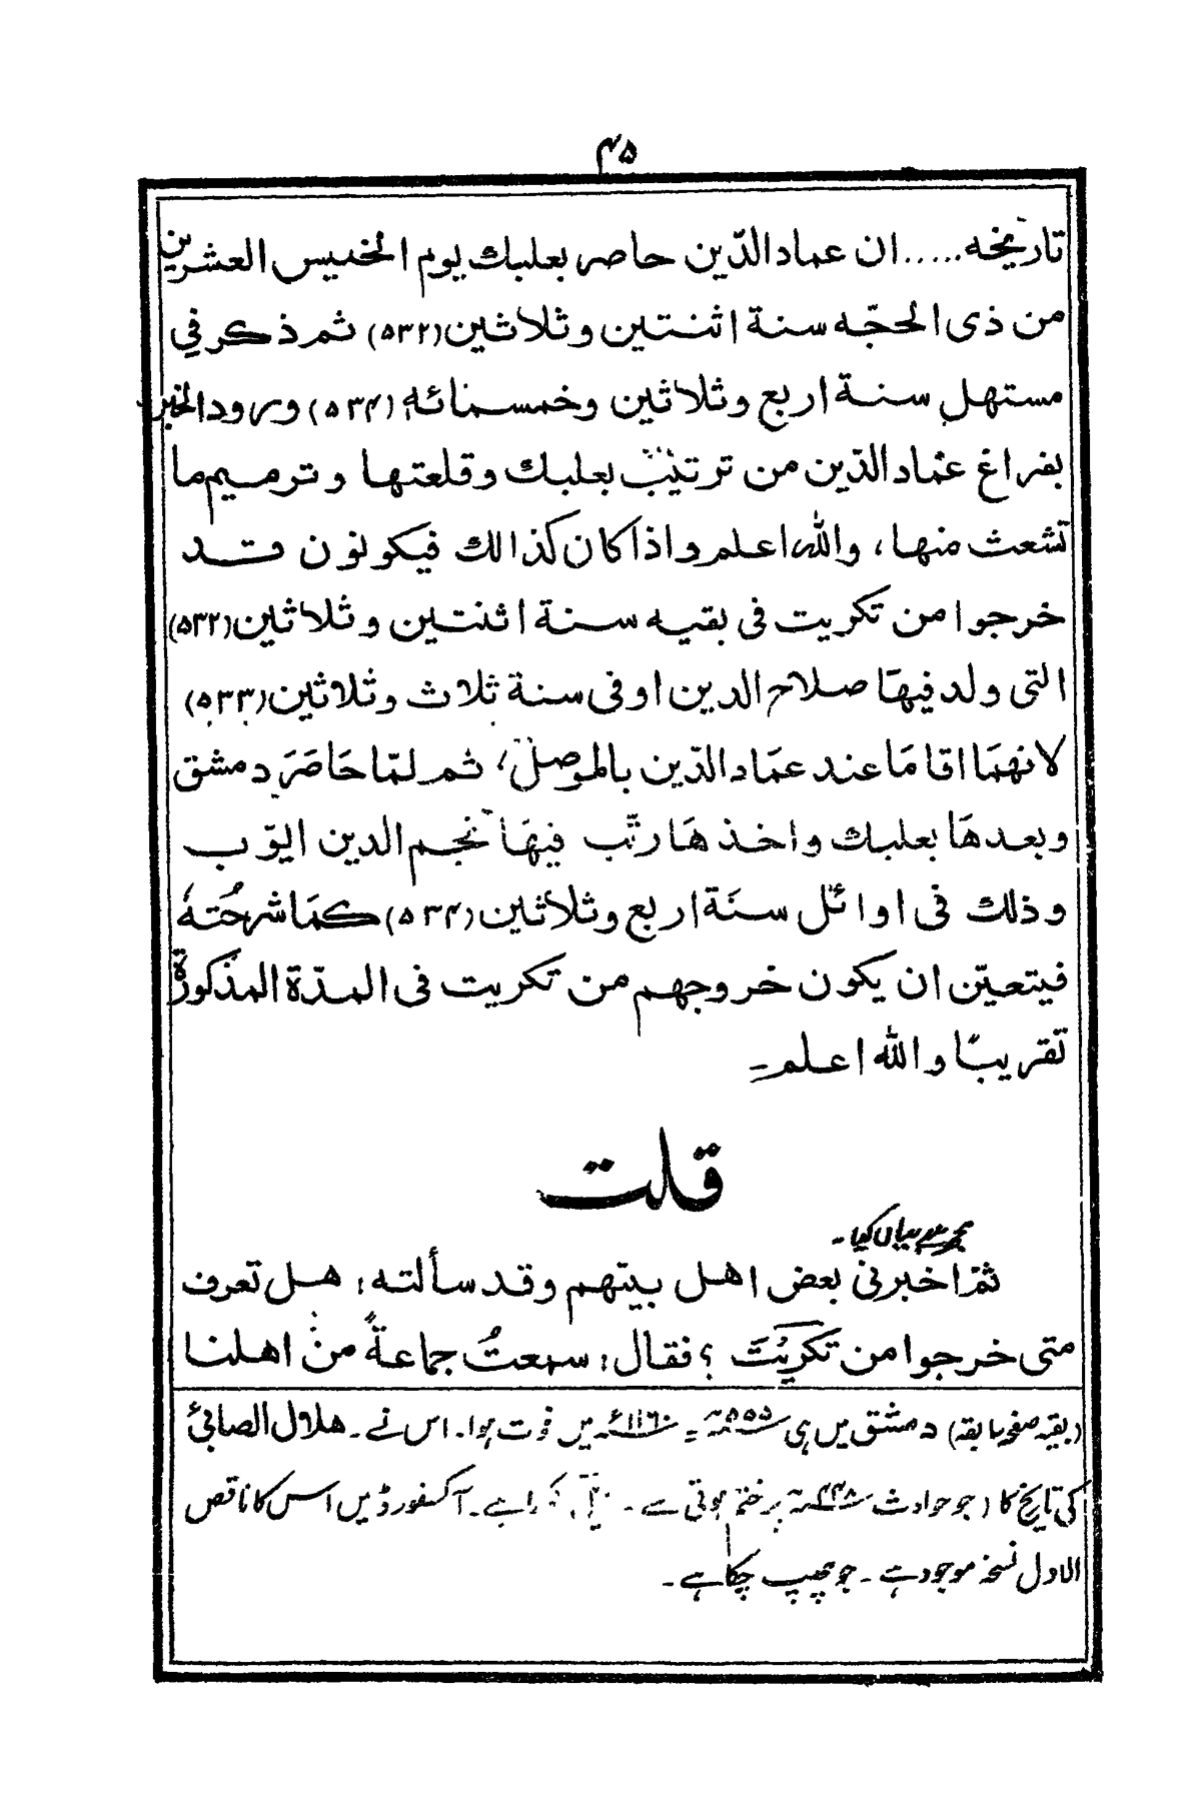 ۴۵
تاریخه.....ان عماد الدّین حاصر بعلبك یوم الخمیس العشرین
من ذی الحجّه سنة اثنتین وثلاثین(۵۳۲) ثم ذکر فی
مستهل سنة اربع وثلاثین وخمسمائه (۵۳۴) ورود الخبر
بفراغ عماد الدّین من ترتیب بعلبك وقلعتها وترمیم ما
تشعث منها، والله اعلم واذا کان کذالك فیکونون قد
خرجوا من تکریت فی بقیه سنة اثنتین وثلاثین(۵۳۲)
التی ولد فیهَا صلاح الدین او فی سنة ثلاث وثلاثین(۵۳۳)
لانهمَا اقامَا عند عمَاد الدّین بالموصل، ثم لمّا حَاصَرَ دمشق
وبعدهَا بعلبك واخذهَا رتّب فیهَا نجم الدین ایوّب
وذلك فی اوائل سنَة اربع وثلاثین(۵۳۴) کمَا شرحُتهٗ
فیتعیّن ان یکون خروجهم من تکریت فی المدّة المذکورة
تقریبًا والله اعلم ـ
قلت
مجھ سے بیاں کیا۔
ثمّ اخبرنی بعض اهل بیتهم وقد سألته: هل تعرف
متی خرجوا من تکریْتَ ؟ فقال: سمعتُ جماعةً من اهلنا
(بقیہ صفحہ سابقہ) دمشق میں ہی ۵۵۵ھ = ۱۱۶۰ء میں فوت ہوا۔ اس نے۔ ھلال الصابیٔ
کی تاریخ کا (جو حوادث ۴۴۸ھ پر ختم ہوتی ہے ۔ ہے۔ آکسفورڈ میں اس کا ناقص
الاول نسخہ موجود ہے ۔ جو چھپ چکا ہے ۔